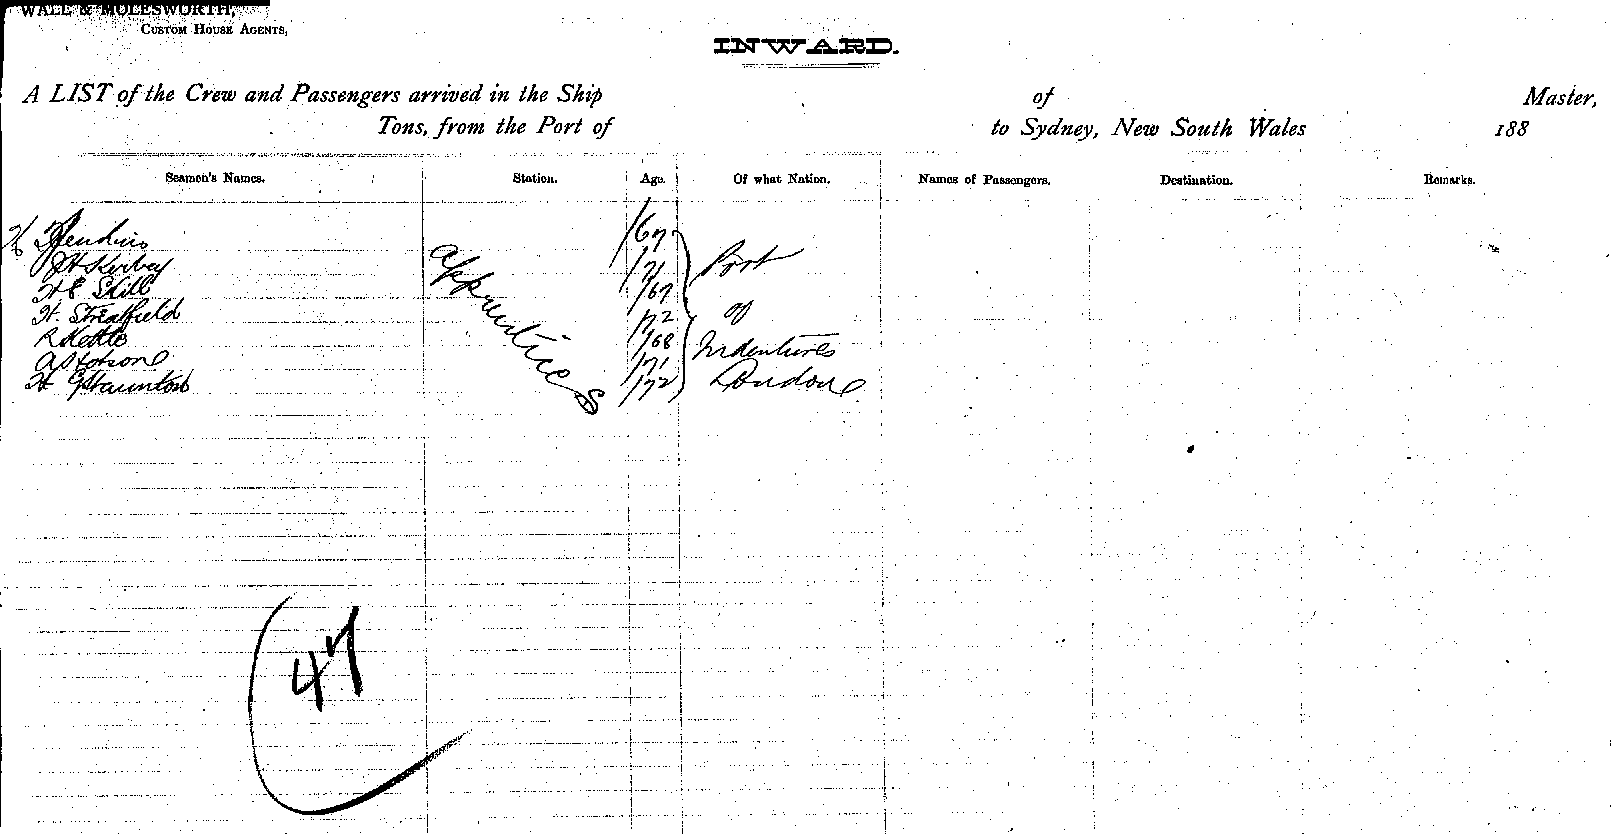 WALE & MOLESWORTH,
CUSTOM HOUSE AGENTS,
INWARD.
A LIST of the Crew and Passengers arrived in the Ship of Master,
Tons, from the Port of to Sydney, New South Wales 188
Seamen's Names. Station. Age. Of what Nation. Names of Passengers. Destination. Remarks.
/67
/71
H E Skill /67
H. Streatfield /72
R Kettle /68
/71
H G Staunton /72
Apprentices
Port
of
Indentures
London
47